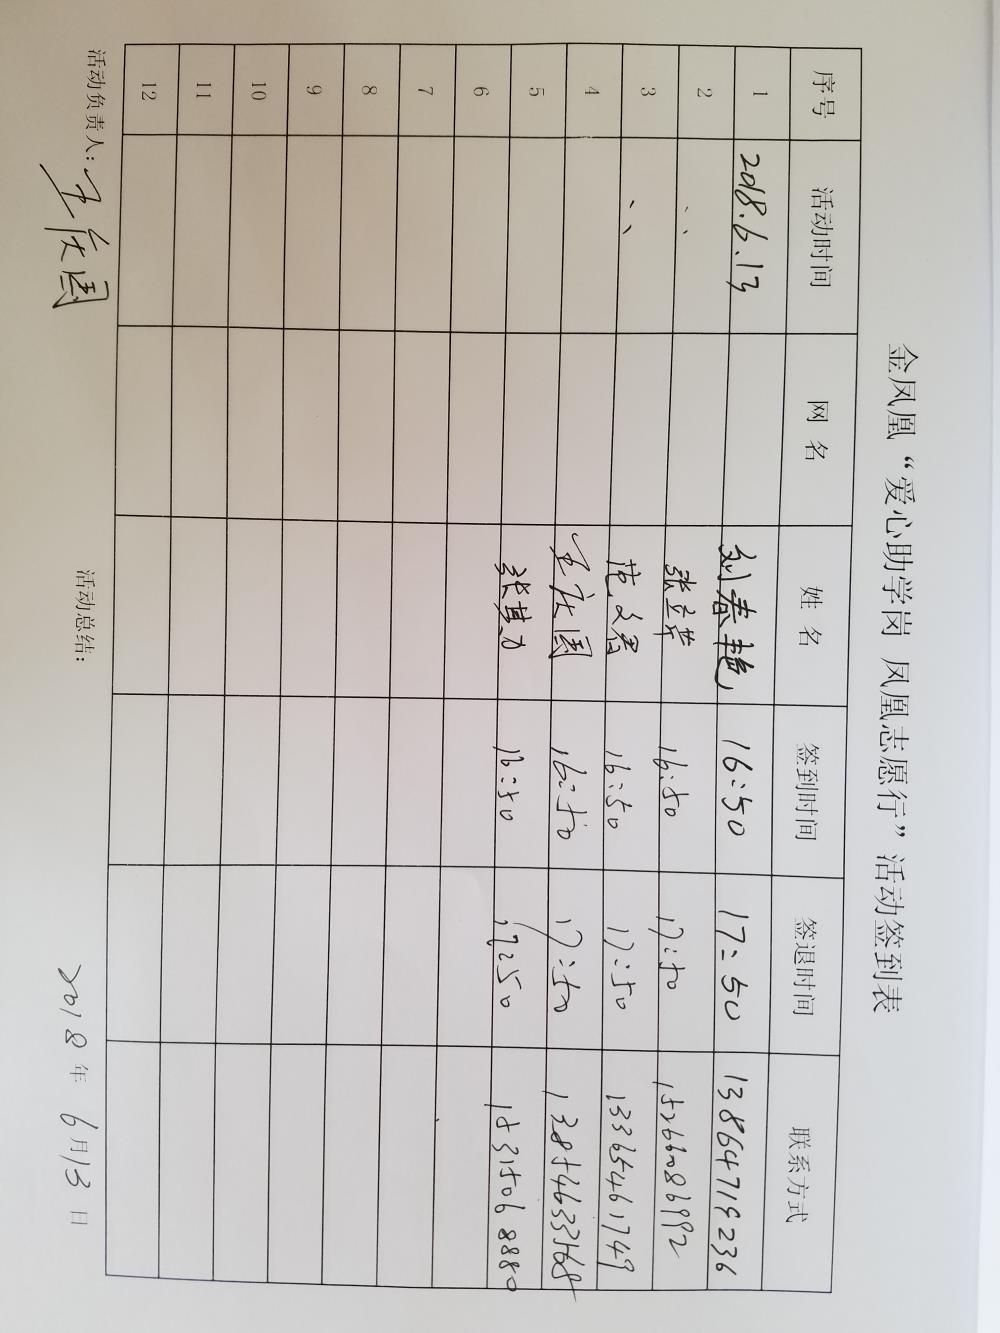 金凤凰“爱心助学岗 凤凰志愿行”活动签到表
序号 活动时间 网 名 姓 名 签到时间 签退时间 联系方式
1 2018.6.13 刘春艳 16:50 17:50 13864719236
2 、、 16:50 17:50 15266086992
3 、、 16:50 17:50 13365461749
4 王庆国 16:50 17:50 13854633168
5 张其力 16:50 17:50 18315068880
6
7
8
9
10
11
12
活动负责人: 王庆国 活动总结: 2018年6月13日